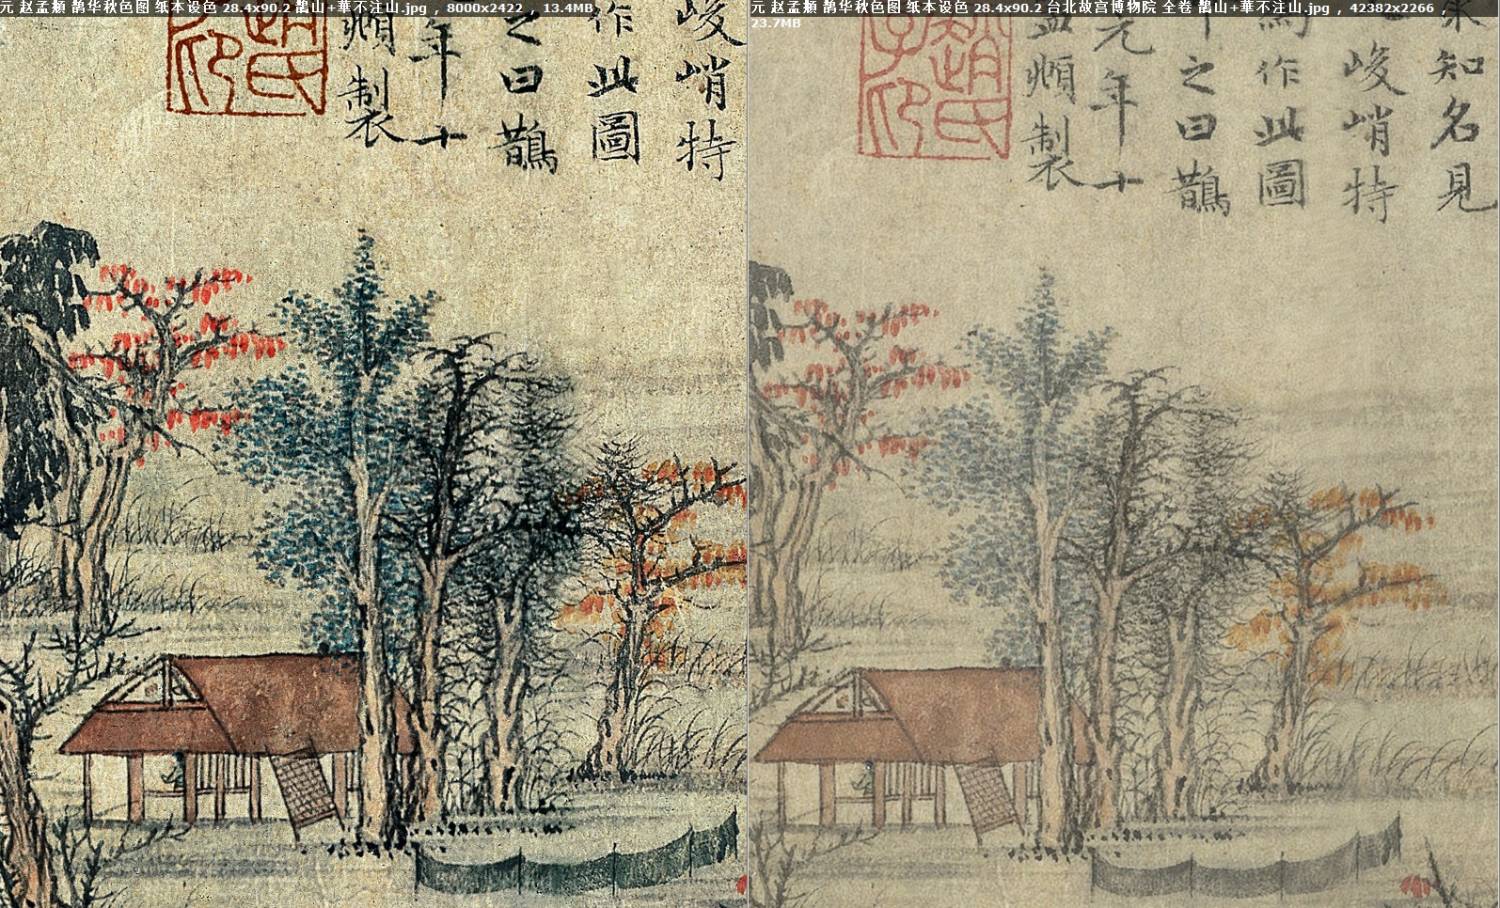 元 赵孟頫 鹊华秋色图 纸本设色 28.4x90.2 鹊山+華不注山.jpg , 8000x2422 , 13.4MB
元 赵孟頫 鹊华秋色图 纸本设色 28.4x90.2 台北故宫博物院 全卷 鹊山+華不注山.jpg , 42382x2266 ,
23.7MB
峻峭特
作此圖
之曰鵲
年十
頫製
趙氏
子印
來知名見
峻峭特
為作此圖
之曰鵲
元年十
孟頫製
趙氏
子印